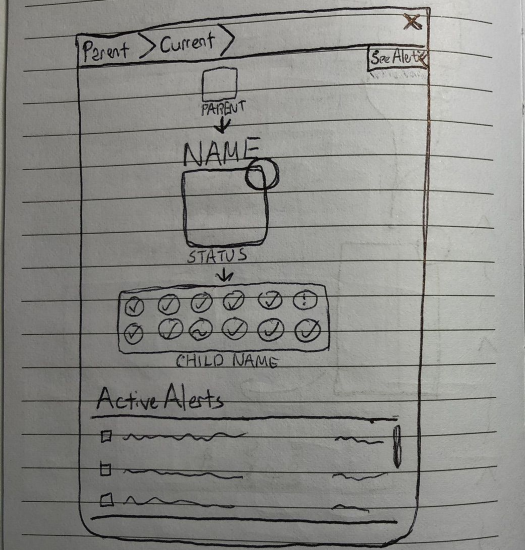 X
Parent > Current >
See Alerts
PARENT
NAME
STATUS
CHILD NAME
Active Alerts